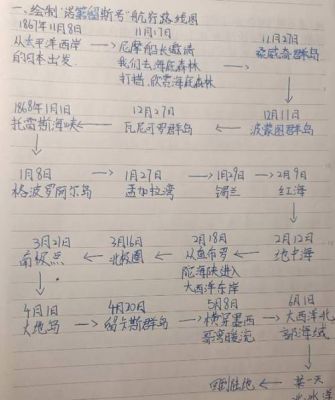 一、绘制"诺第留斯号"航行路线图
1867年11月8日 11月17日 11月27日
从太平洋西岸 → 尼摩船长邀请 → 桑威奇群岛
的日本出发 我们去海底森林
打猎、欣赏海底森林
↓
1868年1月1日 12月27日 12月11日
托雷斯海峡 ← 瓦尼可罗群岛 ← 波蒙图群岛
↓
1月8日 1月27日 1月29日 2月9日
格波罗阿尔岛 → 孟加拉湾 → 锡兰 → 红海
↓
3月21日 3月16日 2月18日 2月12日
南极点 ← 北极圈 ← 从直布罗 ← 地中海
陀海峡进入
大西洋东岸
↓
4月1日 4月20日 5月8日 6月1日
火地岛 → 留卡斯群岛 → 横穿墨西 → 大西洋北
哥湾暖流 部海域
↓
回到陆地 ← 某一天
北冰洋